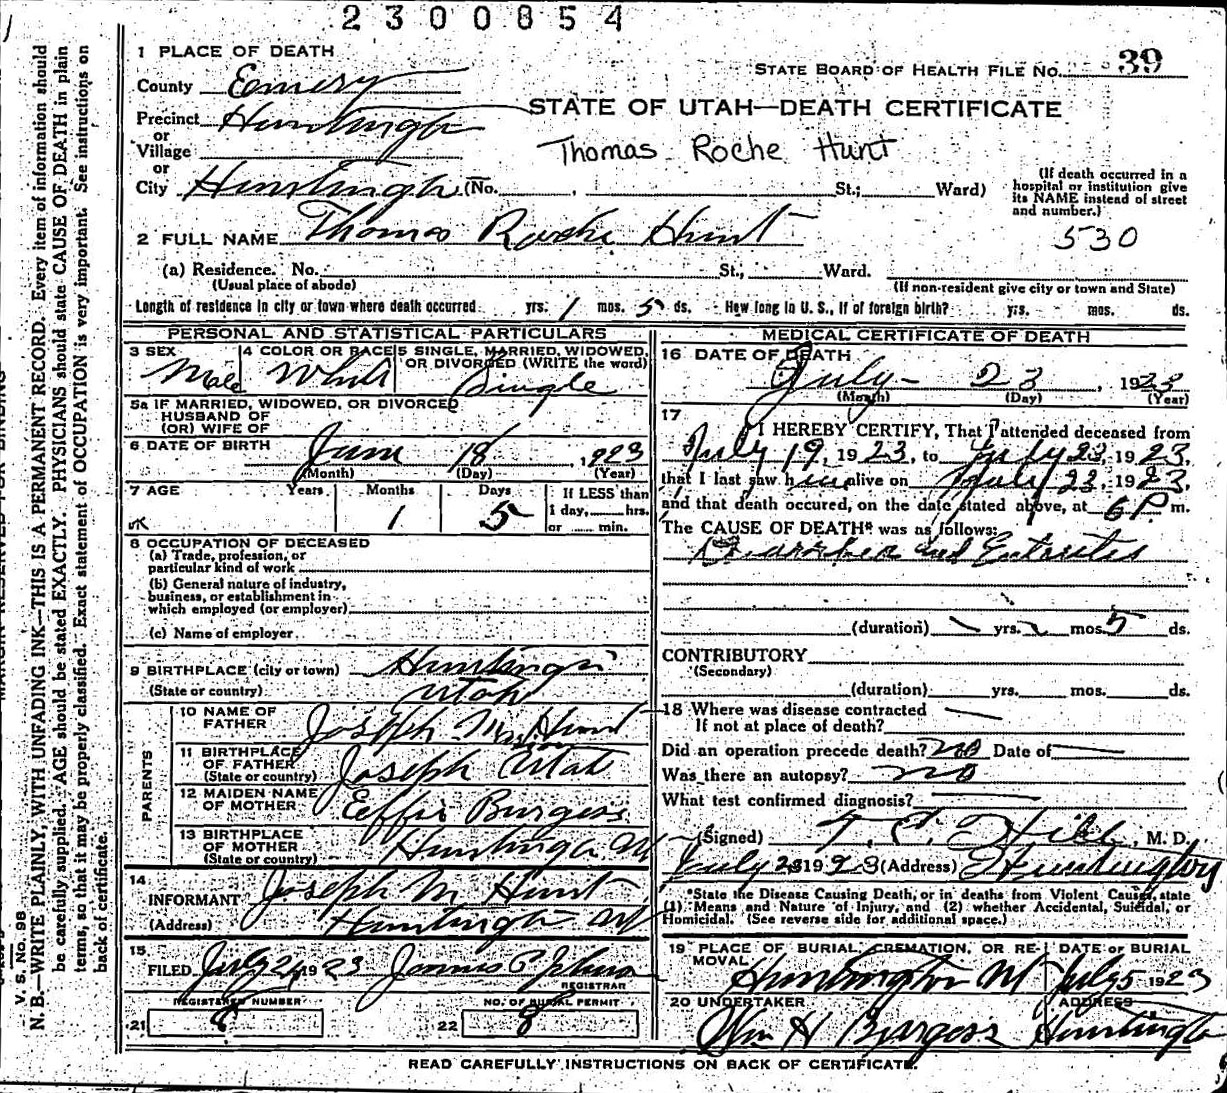 2300854
39
1 PLACE OF DEATH
STATE BOARD OF HEALTH FILE No.
County Emery
STATE OF UTAH—DEATH CERTIFICATE
Precinct Huntington
or
Village
Thomas Roche Hunt
or
City Huntington (No. , St.; Ward)
(If death occurred in a
hospital or institution give
its NAME instead of street
and number.)
2 FULL NAME Thomas Roche Hunt
530
(a) Residence. No. St., Ward.
(Usual place of abode)
(If non-resident give city or town and State)
Length of residence in city or town where death occurred yrs. 1 mos. 5 ds. How long in U. S., if of foreign birth? yrs. mos. ds.
PERSONAL AND STATISTICAL PARTICULARS
3 SEX
Male
4 COLOR OR RACE
White
5 SINGLE, MARRIED, WIDOWED,
OR DIVORCED (WRITE the word)
Single
5a IF MARRIED, WIDOWED, OR DIVORCED
HUSBAND OF
(OR) WIFE OF
6 DATE OF BIRTH June 18, 1923
(Month) (Day) (Year)
7 AGE Years Months Days
1 5
If LESS than
1 day, hrs.
or min.
8 OCCUPATION OF DECEASED
(a) Trade, profession, or
particular kind of work
(b) General nature of industry,
business, or establishment in
which employed (or employer)
(c) Name of employer
9 BIRTHPLACE (city or town) Huntington
(State or country) Utah
PARENTS
10 NAME OF
FATHER Joseph M. Hunt
11 BIRTHPLACE
OF FATHER
(State or country) Joseph Utah
12 MAIDEN NAME
OF MOTHER Eeffie Burgess
13 BIRTHPLACE
OF MOTHER
(State or country) Huntington Ut
14
INFORMANT Joseph M. Hunt
(Address) Huntington Ut
15
FILED July 24 1923
REGISTRAR
REGISTERED NUMBER
21 8
NO. OF BURIAL PERMIT
22 8
MEDICAL CERTIFICATE OF DEATH
16 DATE OF DEATH
July 23, 1923
(Month) (Day) (Year)
17
I HEREBY CERTIFY, That I attended deceased from
July 19, 1923, to July 23, 1923,
that I last saw him alive on July 23, 1923,
and that death occured, on the date stated above, at 6 P m.
The CAUSE OF DEATH* was as follows:
Diarrhea and Enteritis
(duration) yrs. mos. 5 ds.
CONTRIBUTORY
(Secondary)
(duration) yrs. mos. ds.
18 Where was disease contracted
If not at place of death?
Did an operation precede death? no Date of
Was there an autopsy? no
What test confirmed diagnosis?
(Signed) T. C. Hill, M. D.
July 23 1923 (Address) Huntington
*State the Disease Causing Death, or in deaths from Violent Causes, state
(1) Means and Nature of Injury, and (2) whether Accidental, Suicidal, or
Homicidal. (See reverse side for additional space.)
19 PLACE OF BURIAL, CREMATION, OR RE-
MOVAL
Huntington Ut
DATE OF BURIAL
July 5 1923
20 UNDERTAKER
Wm H Burgess
ADDRESS
Huntington
READ CAREFULLY INSTRUCTIONS ON BACK OF CERTIFICATE.
V. S. No. 98
N. B.—WRITE PLAINLY, WITH UNFADING INK—THIS IS A PERMANENT RECORD. Every item of information should
be carefully supplied. AGE should be stated EXACTLY. PHYSICIANS should state CAUSE OF DEATH in plain
terms, so that it may be properly classified. Exact statement of OCCUPATION is very important. See instructions on
back of certificate.